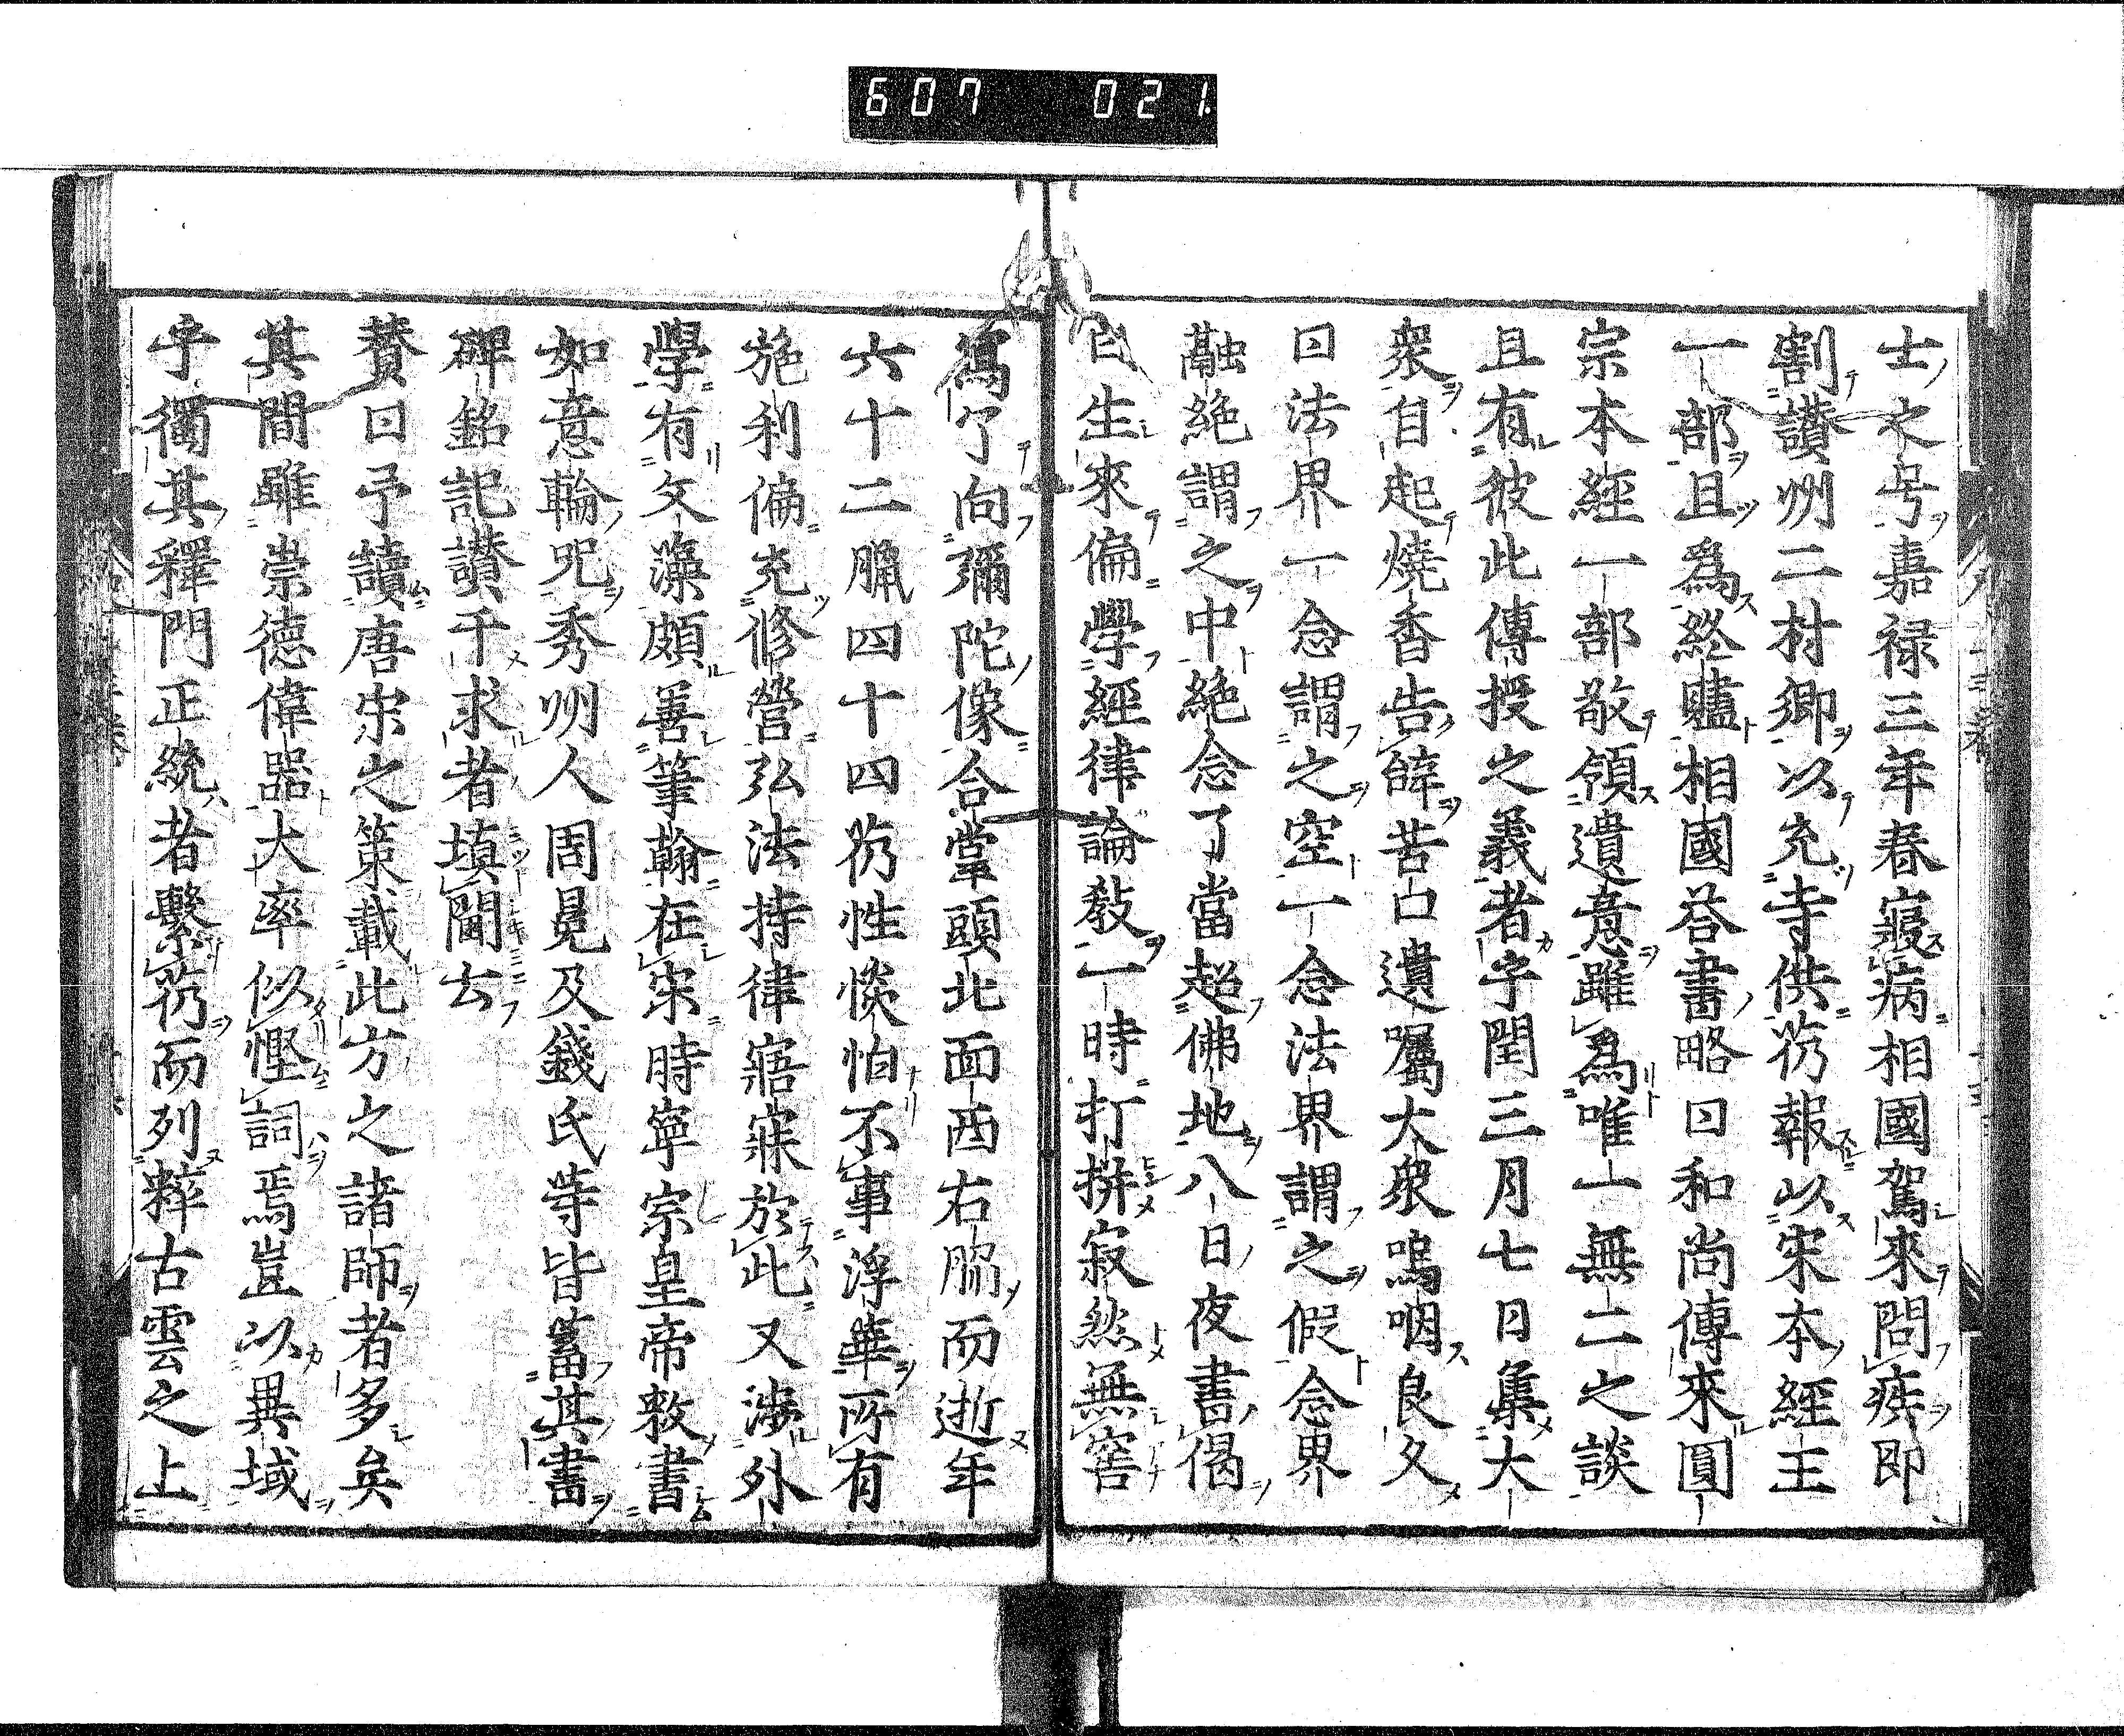 607 021
士之号嘉禄三年春寢病相國駕來問疾即
割讃州二村郷以充寺供芿報以宋本經王
一部且爲終贐相國荅書略曰和尚傳來圓
宗本經一部敬領遺意雖爲唯一無二之談
且有彼此傳授之義者乎閏三月七日集大
衆自起燒香告辞苦口遺囑大衆嗚咽良久
曰法界一念謂之空一念法界謂之假念界
融絶謂之中絶念了當超佛地八日夜書偈
曰生來偏學經律論教一時打拼寂然無窖
寫了向彌陀像合掌頭北面西右脇而逝年
六十二臘四十四芿性惔怕不事浮華所有
施利偏充修營弘法持律寤寐於此又渉外
學有文藻頗善筆翰在宋時寧宗皇帝敕書
如意輪咒秀州人周晃及錢氏等皆蓄其書
碑銘記讃干求者填闐去
賛曰予讀唐宋之策載此方之諸師者多矣
其間雖崇德偉器大率似慳詞焉豈以異域
乎獨其釋門正統者繫芿而列粹古雲之上